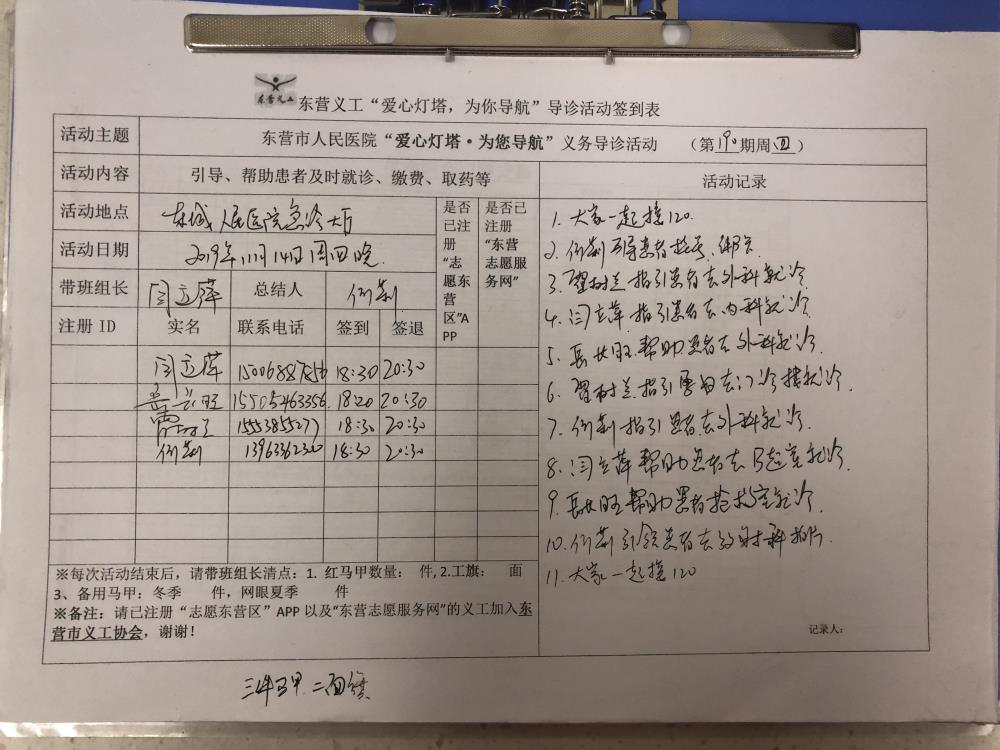 东营义工
东营义工“爱心灯塔，为你导航”导诊活动签到表
活动主题 东营市人民医院“爱心灯塔·为您导航”义务导诊活动 （第190期周四）
活动内容 引导、帮助患者及时就诊、缴费、取药等 活动记录
活动地点 东城人民医院急诊大厅
活动日期 2019年11月14日周四晚
带班组长 闫立萍 总结人
是否已注册“志愿东营区”APP
是否已注册“东营志愿服务网”
注册 ID 实名 联系电话 签到 签退
闫立萍 15006887856 18:30 20:30
15505463356 18:20 20:30
18:30 20:30
13963362300 18:30 20:30
1. 大家一起接120.
2. 患者挂号、
3. 指引患者去外科就诊
4. 闫立萍指引患者去内科就诊
5. 帮助患者去外科就诊.
6. 指引 去门诊楼就诊.
7. 指引患者去外科就诊.
8. 闫立萍帮助患者去B超室就诊.
9. 帮助患者抢救室就诊.
10. 引领患者去放射科拍片.
11. 大家一起接120
※每次活动结束后，请带班组长清点：1. 红马甲数量： 件, 2.工旗： 面
3、备用马甲：冬季 件，网眼夏季 件
※备注：请已注册“志愿东营区”APP 以及“东营志愿服务网”的义工加入东
营市义工协会，谢谢！
记录人：
三件马甲 二面旗